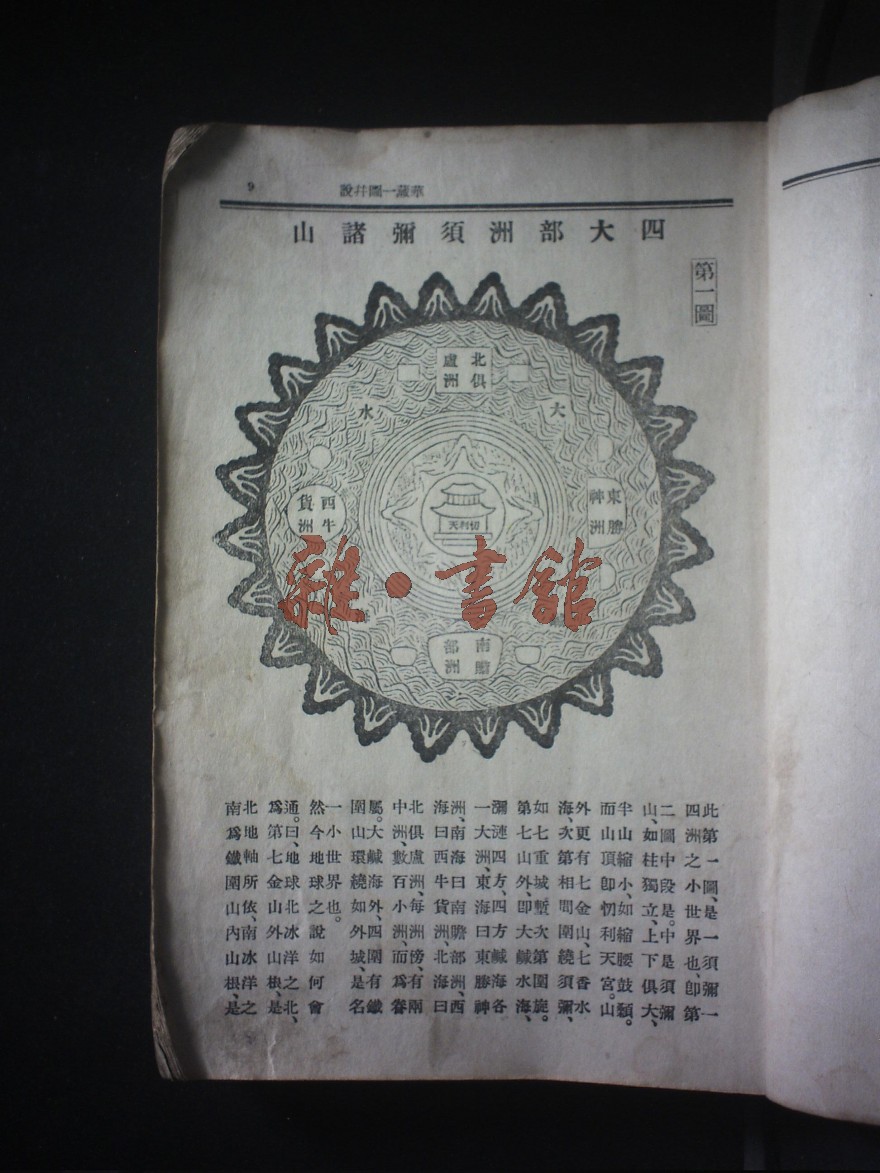 華藏一圖幷說
9
四大部洲須彌諸山
第一圖
北俱盧洲
大水
東勝神洲
西牛貨洲
忉利天
南贍部洲
雜·書館
此第一圖、是一須彌一
四洲之小世界也、卽第
二圖中段是。中是須彌
山、如柱獨立、上下俱大、
半山縮小、如縮腰鼓類。
而山頂卽忉利天宮。山
外更有七金山、七香水
海、次第相間圍繞須彌、
如七重城塹次第圍旋。
第七山外、卽大鹹水海、
瀰漣四方、四方鹹海各
一大洲、東海曰東勝神
洲、南海曰南贍部洲、西
海曰西牛貨洲、北海曰
北俱盧洲、每洲傍、有兩
中洲、數百小洲、而爲眷
屬。大鹹海外、四圍有鐵
圍山環繞、如外城、是名
一小世界也。
然今地球之說如何會
通。曰、地球北冰洋之北、
爲第七金山外山根、是
北地軸所依、南冰洋之
南爲鐵圍山、內山根、是